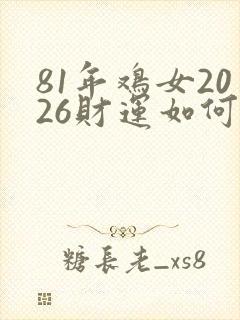 81年鸡女20
26财运如何
糖長老_xs8